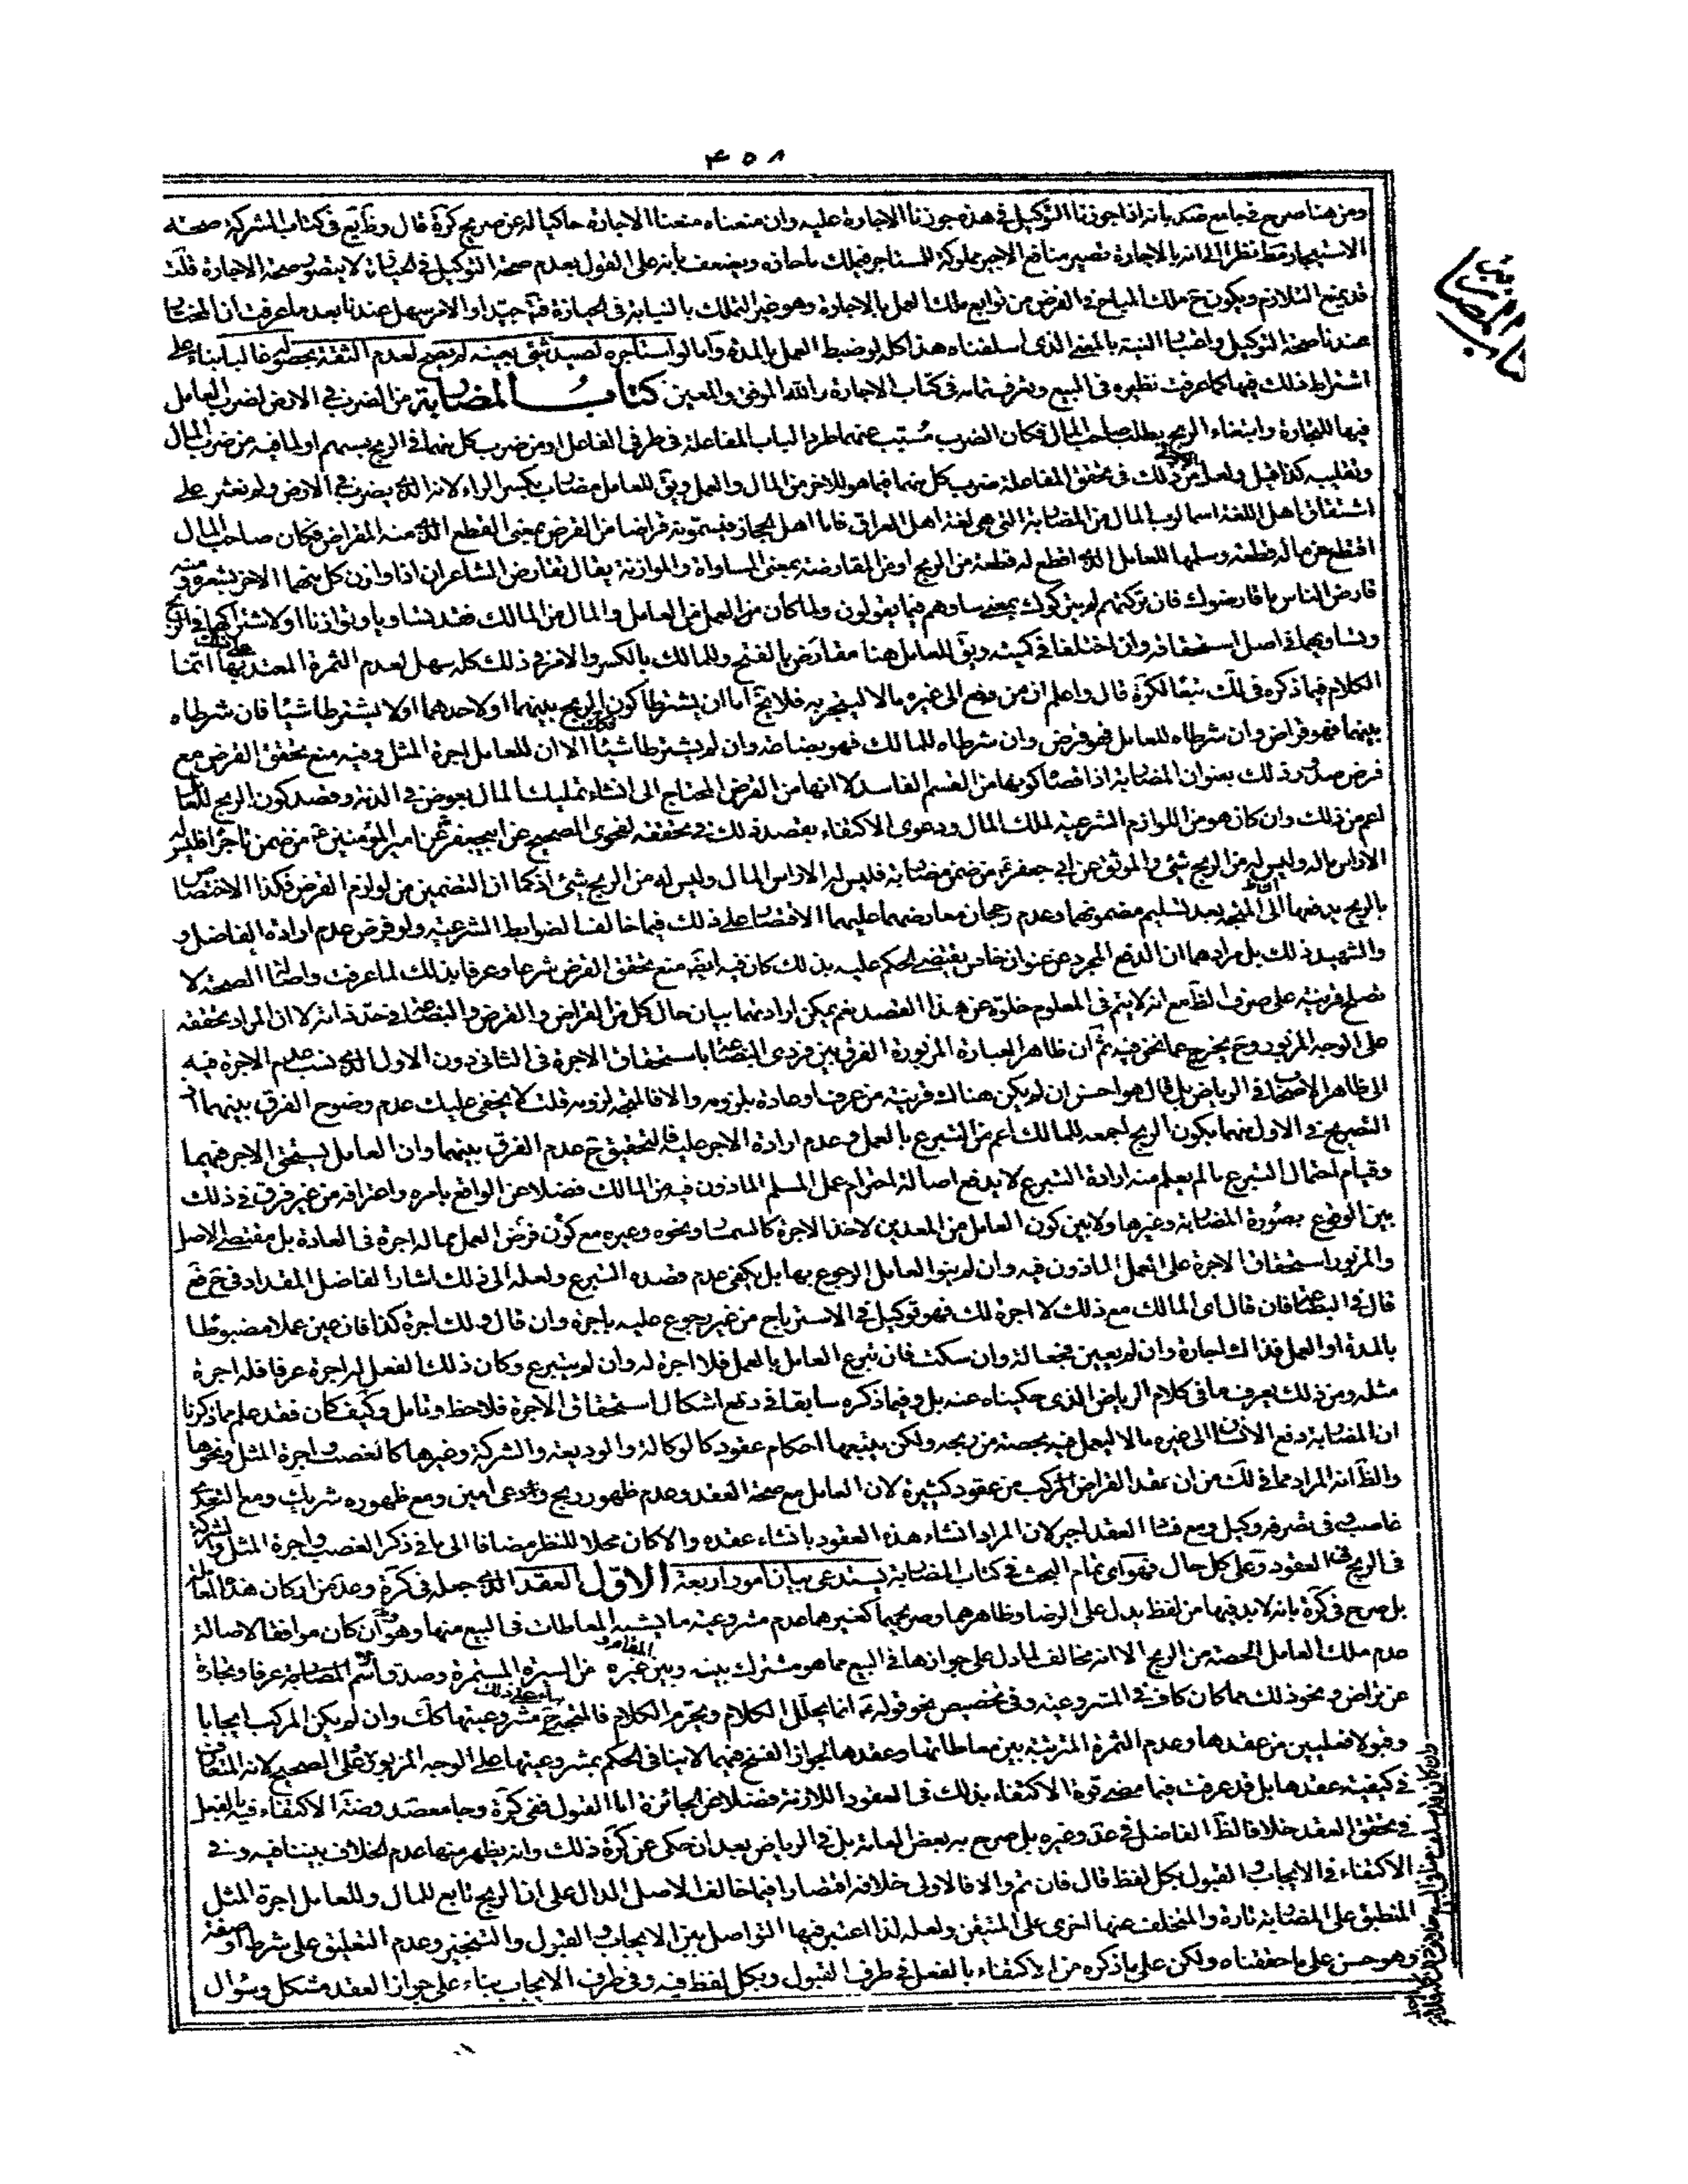 ۴۵۸
كتاب المضاربة
ومن هنا صرح في جامع صد بانه اذا جوزنا التوكيل في هذه جوزنا الاجارة عليه وان منعناه منعنا الاجارة حاكيا له عن صريح كرة قال و في كتاب الشركة صحة
الاستيجار نظرا الى انه بالاجارة تصير منافع الاجير مملوكة للمستاجر فيملك ما حازه ويضعف بانه على القول بعدم صحة التوكيل في الحيازة لا يتصور صحة الاجارة قلت
قد يمنع التلازم ويكون ح ملك المباح في الفرض من توابع ملك العمل بالاجارة وهو غير التملك بالنيابة في الحيازة فت جيدا والامر سهل عندنا بعد ما عرفت ان المختار
عندنا صحة التوكيل واعتبار النية بالمعنى الذي اسلفناه هذا كله لو ضبط العمل بالمدة واما لو استاجره لصيد شيء بعينه لم يصح لعدم الثقة بحصوله غالبا بناء على
اشتراط ذلك فيها كما عرفت نظيره في البيع وتعرف تمامه في كتاب الاجارة والله الموفق والمعين كتاب المضاربة من الضرب في الارض لضرب العامل
فيها للتجارة وابتغاء الربح بطلب صاحب المال فكان الضرب مسبب عنهما طرد الباب المفاعلة في طرفي الفاعل او من ضرب كل منهما في الربح بسهم او لما فيه من ضرب المال
وتقليبه كذا قيل ولعل من ذلك في تحقق المفاعلة ضرب كل منهما فيما هو للاخر من المال والعمل ويق للعامل مضارب بكسر الراء لانه الذي يضرب في الارض ولم نعثر على
اشتقاق اهل اللغة اسما لرب المال من المضاربة التي هي لغة اهل العراق فاما اهل الحجاز فيسمونه قراضا من القرض بمعنى القطع الذي منه المقراض فكان صاحب المال
اقتطع من ماله قطعة وسلمها للعامل الذي اقطع له قطعة من الربح او من المقارضة بمعنى المساواة والموازنة يقال تقارض الشاعران اذا وازن كل منهما الاخر بشعره ومنه
قارض الناس ما قارضوك فان تركتهم لم يتركوك بمعنى ساوهم فيما يقولون ولما كان من العامل العمل والمال من المالك فقد تساويا وتوازنا او لاشتراكهما في الربح
وتساويهما في اصل استحقاقه وان اختلفا في كميته ويق للعامل هنا مقارض بالفتح وللمالك بالكسر والامر في ذلك كله سهل لعدم الثمرة المعتد بها انما
الكلام فيما ذكره في لك تبعا لكرة قال واعلم ان من دفع الى غيره مالا ليتجر به فلا يخ اما ان يشترطا كون الربح بينهما او لاحدهما او لا يشترطا شيئا فان شرطاه
بينهما فهو قراض وان شرطاه للعامل فهو قرض وان شرطاه للمالك فهو بضاعة وان لم يشترطا شيئا الا ان للعامل اجرة المثل وفيه منع تحقق القرض مع
فرض صدور ذلك بعنوان المضاربة اذ اقصاه كونها من القسم الفاسد لا انها من القرض المحتاج الى انشاء تمليك المال بعوض في الذمة وقصد كون الربح للعامل
اعم من ذلك وان كان هو من اللوازم الشرعية لملك المال ودعوى الاكتفاء بقصد ذلك في تحققه لفحوى الصحيح عن ابي جعفر عن امير المؤمنين من ضمن تاجرا فليس له
الا راس ماله وليس له من الربح شيء والموثق عن ابي جعفر من ضمن مضاربه فليس له الا راس المال وليس له من الربح شيء اذ كما ان التضمين من لوازم القرض فكذا الاختصاص
بالربح يدفعها ان المتجه بعد تسليم مضمونهما وعدم رجحان معارضهما عليهما الاقتصار على ذلك فيما خالف الضوابط الشرعية ولو فرض عدم ارادة الفاضل و
والشهيد ذلك بل مرادهما ان الدفع المجرد عن عنوان خاص يقتضي الحكم عليه بذلك كان فيه ايض منع تحقق القرض شرعا وعرفا بذلك لما عرفت واصالة الصحة لا
تصلح قرينة على صرف اللفظ مع انه لا يتم في المعلوم خلوه عن هذا القصد نعم يمكن ارادتهما بيان حال كل من القراض والقرض والبضاعة في حد ذاته لا ان المراد تحققه
على الوجه المزبور وح يخرج عما نحن فيه ثم ان ظاهر العبارة المزبورة الفرق بين فردي البضاعة باستحقاق الاجرة في الثاني دون الاول الذي نسب عدم الاجرة فيه
الى ظاهر الاصحاب في الرياض بل قال هو احسن ان لم يكن هناك قرينة من عرف او عادة بلزومه والا فالمتجه لزومه قلت لا يخفى عليك عدم وضوح الفرق بينهما اذ
التصريح في الاول منهما بكون الربح اجمعه للمالك اعم من التبرع بالعمل وعدم ارادة الاجر عليه فالتحقيق ح عدم الفرق بينهما وان العامل يستحق الاجر فيهما
وقيام احتمال التبرع ما لم يعلم منه ارادة التبرع لا يدفع اصالة احترام عمل المسلم الماذون فيه من المالك فضلا عن الواقع بامره واعترافه من غير فرق في ذلك
بين الوقوع بصورة المضاربة وغيرها ولا بين كون العامل من المعدين لاخذ الاجرة كالسمسار ونحوه وغيره مع كون فرض العمل مما له اجرة في العادة بل مقتضى الاصل
والمزبور استحقاق الاجرة على العمل الماذون فيه وان لم ينو العامل الرجوع بها بل يكفي عدم قصده التبرع ولعله الى ذلك اشار الفاضل المقداد في ح فع
قال في البضاعة فان قال اي المالك مع ذلك لا اجرة لك فهو توكيل في الاسترباح من غير رجوع عليه باجرة وان قال ولك اجرة كذا فان عين عملا مضبوطا
بالمدة او العمل فذاك اجارة وان لم يعين فجعالة وان سكت فان تبرع العامل بالعمل فلا اجرة له وان لم يتبرع وكان ذلك الفعل له اجرة عرفا فله اجرة
مثله ومن ذلك يعرف ما في كلام الرياض الذي حكيناه عنه بل وفيما ذكره سابقا في دفع اشكال استحقاق الاجرة فلاحظ وتامل وكيف كان فقد علم مما ذكرنا
ان المضاربة دفع الانسان الى غيره مالا ليعمل فيه بحصة من ربحه ولكن يتبعها احكام عقود كالوكالة والوديعة والشركة وغيرها كالغصب واجرة المثل ونحوها
والظ انه المراد مما في لك من ان عقد القراض المركب من عقود كثيرة لان العامل مع صحة العقد وعدم ظهور ربح ودعي امين ومع ظهوره شريك ومع التعدي
غاصب وفي تصرفه وكيل ومع فساد العقد اجير لان المراد انشاء هذه العقود بانشاء عقده والا كان محلا للنظر مضافا الى ما في ذكر الغصب واجرة المثل والشركة
في الربح في العقود وعلى كل حال فهو اي تمام البحث في كتاب المضاربة يستدعي بيان امور اربعة الاول العقد الذي جعله في كرة وعد من اركان هذه المعاملة
بل صرح في كرة بانه لا بد فيها من لفظ يدل على الرضا وظاهرهما وصريحهما كغيرهما عدم مشروعية ما يشبه المعاطات في البيع منها وهو وان كان موافقا لاصالة
عدم ملك العامل الحصة من الربح الا انه مخالف لما دل على جوازها في البيع مما هو مشترك بينه وبين غيره من السيرة المستمرة وصدق اسم المضاربة عرفا وتجارة
عن تراض ونحو ذلك مما كان كاف في المشروعية وفي تخصيص نحو قوله انما يحلل الكلام ويحرم الكلام فالمتجه ح مشروعيتها كك وان لم يكن المركب ايجابا
وقبولا فعليين من عقدها وعدم الثمرة المترتبة بين معاطاتها وعقدها لجواز الفسخ فيهما لا ينافي الحكم بمشروعيتها على الوجه المزبور على الصحيح لانه المتعارف
في كيفية عقدها بل قد عرفت فيما مضى قوة الاكتفاء بذلك في العقود اللازمة فضلا عن الجائزة اما القبول ففي كرة وجامع صد وضة الاكتفاء فيه بالفعل
في تحقق العقد خلافا لظ الفاضل في عد وغيره بل صرح به بعض العامة بل في الرياض بعد ان حكى عن كرة ذلك وانه يظهر منها عدم الخلاف بيننا فيه وفي
الاكتفاء في الايجاب والقبول بكل لفظ قال فان تم والا فالاولى خلافه اقتصارا فيما خالف الاصل الدال على ان الربح تابع للمال وللعامل اجرة المثل
المنطبق على المضاربة تارة والمتخلف عنها اخرى على المتيقن ولعله لذا اعتبر فيها التواصل بين الايجاب والقبول والتنجيز وعدم التعليق على شرط او صفة
وهو حسن على ما حققناه ولكن على ما ذكره من الاكتفاء بالفعل في طرف القبول وبكل لفظ فيه وفي طرف الايجاب بناء على جواز العقد مشكل وسؤال